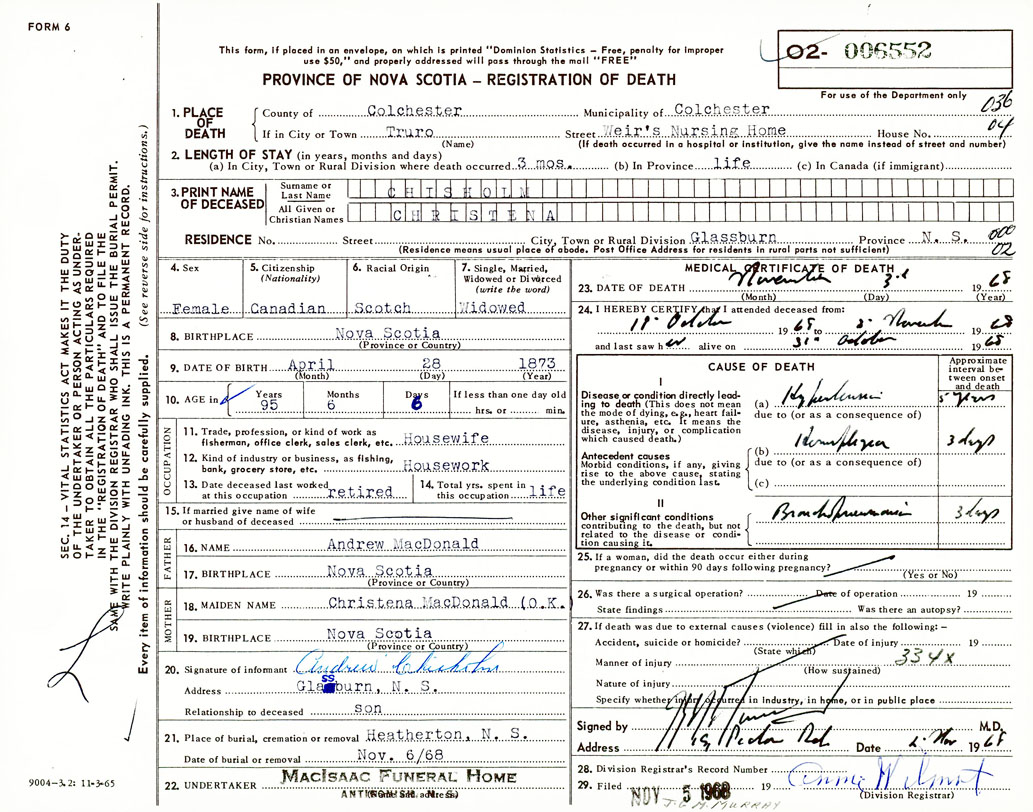 FORM 6
This form, if placed in an envelope, on which is printed "Dominion Statistics – Free, penalty for improper
use $50," and properly addressed will pass through the mail "FREE"
O2- 006552
PROVINCE OF NOVA SCOTIA – REGISTRATION OF DEATH
For use of the Department only
036
04
1. PLACE OF DEATH
County of Colchester Municipality of Colchester
If in City or Town Truro Street Weir's Nursing Home House No.
(Name) (If death occurred in a hospital or institution, give the name instead of street and number)
2. LENGTH OF STAY (in years, months and days)
(a) In City, Town or Rural Division where death occurred 3 mos. (b) In Province life (c) In Canada (if immigrant)
3. PRINT NAME OF DECEASED
Surname or Last Name CHISHOLM
All Given or Christian Names CHRISTENA
RESIDENCE No. Street City, Town or Rural Division Glassburn Province N. S.
(Residence means usual place of abode. Post Office Address for residents in rural parts not sufficient)
000
02
4. Sex
Female
5. Citizenship (Nationality)
Canadian
6. Racial Origin
Scotch
7. Single, Married, Widowed or Divorced (write the word)
Widowed
8. BIRTHPLACE Nova Scotia
(Province or Country)
9. DATE OF BIRTH April 28 1873
(Month) (Day) (Year)
10. AGE in Years 95 Months 6 Days 6 If less than one day old hrs. or min.
OCCUPATION
11. Trade, profession, or kind of work as
fisherman, office clerk, sales clerk, etc. Housewife
12. Kind of industry or business, as fishing,
bank, grocery store, etc. Housework
13. Date deceased last worked at this occupation retired
14. Total yrs. spent in this occupation life
15. If married give name of wife
or husband of deceased
FATHER
16. NAME Andrew MacDonald
17. BIRTHPLACE Nova Scotia
(Province or Country)
MOTHER
18. MAIDEN NAME Christena MacDonald (O.K.)
19. BIRTHPLACE Nova Scotia
(Province or Country)
20. Signature of informant Andrew Chisholm
ss
Address Glassburn, N. S.
Relationship to deceased son
21. Place of burial, cremation or removal Heatherton, N. S.
Date of burial or removal Nov. 6/68
22. UNDERTAKER MACISAAC FUNERAL HOME
ANTIGONISH, N. S.
(Name and address)
MEDICAL CERTIFICATE OF DEATH
23. DATE OF DEATH November 3rd 1968
(Month) (Day) (Year)
24. I HEREBY CERTIFY that I attended deceased from:
October 1968 to November 1968
and last saw her alive on 31st October 1968
CAUSE OF DEATH
Approximate interval between onset and death
I
Disease or condition directly leading to death (This does not mean the mode of dying, e.g., heart failure, asthenia, etc. It means the disease, injury, or complication which caused death.)
(a) Hypertension 5 years
due to (or as a consequence of)
Antecedent causes
Morbid conditions, if any, giving rise to the above cause, stating the underlying condition last.
(b) Hemiplegia 3 days
due to (or as a consequence of)
(c)
II
Other significant conditions
contributing to the death, but not related to the disease or condition causing it.
Bronchopneumonia 3 days
25. If a woman, did the death occur either during
pregnancy or within 90 days following pregnancy?
(Yes or No)
26. Was there a surgical operation? Date of operation 19
State findings Was there an autopsy?
27. If death was due to external causes (violence) fill in also the following: –
Accident, suicide or homicide? Date of injury 19
(State which)
334X
Manner of injury
(How sustained)
Nature of injury
Specify whether injury occurred in industry, in home, or in public place
Signed by M.D.
Address Date Nov 1968
28. Division Registrar's Record Number
29. Filed NOV 5 1968 19 Anna Wilmot
(Division Registrar)
J.C.H. MURRAY
SEC. 14 – VITAL STATISTICS ACT MAKES IT THE DUTY
OF THE UNDERTAKER OR PERSON ACTING AS UNDER-
TAKER TO OBTAIN ALL THE PARTICULARS REQUIRED
IN THE "REGISTRATION OF DEATH" AND TO FILE THE
SAME WITH THE DIVISION REGISTRAR WHO SHALL ISSUE THE BURIAL PERMIT.
WRITE PLAINLY WITH UNFADING INK. THIS IS A PERMANENT RECORD.
Every item of information should be carefully supplied. (See reverse side for instructions.)
9004-3.2: 11-3-65